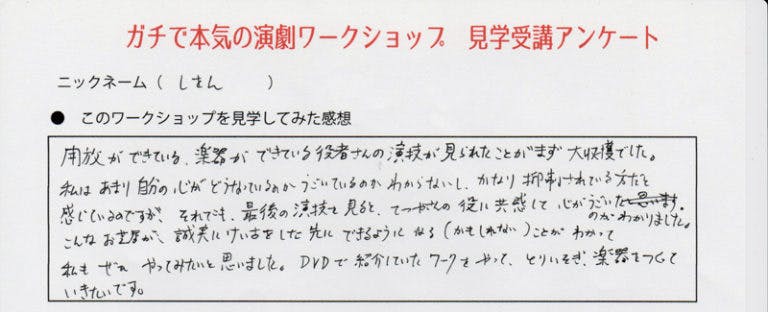 ガチで本気の演劇ワークショップ 見学受講アンケート
ニックネーム（ しさん ）
● このワークショップを見学してみた感想
開放ができている、楽器ができている役者さんの演技が見られたことがまず大収穫でした。
私はあまり自分の心がどうなっているのかうごいているのかわからないし、かなり抑制されている方だと
感じているのですが、それでも、最後の演技を見ると、てつやさんの役に共感して心がうごいたと思います。
のがわかりました。
こんなお芝居が、誠実にけいこをした先にできるようになる（かもしれない）ことがわかって
私もぜひやってみたいと思いました。DVDで紹介していたワークをやって、とりいそぎ、楽器をつくって
いきたいです。